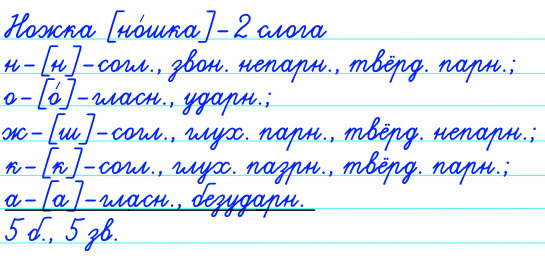 Ножка [но́шка]-2 слога
н-[н]-согл., звон. непарн., твёрд. парн.;
о-[о́]-гласн., ударн.;
ж-[ш]-согл., глух. парн., твёрд. непарн.;
к-[к]-согл., глух. пазрн., твёрд. парн.;
а-[а]-гласн., безударн.
5 б., 5 зв.